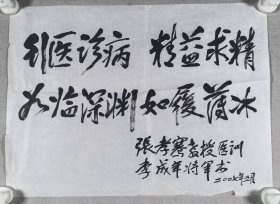 行医诊病 精益求精
如临深渊 如履薄冰
張孝骞教授医训
李成年将军书
二〇〇七年三月